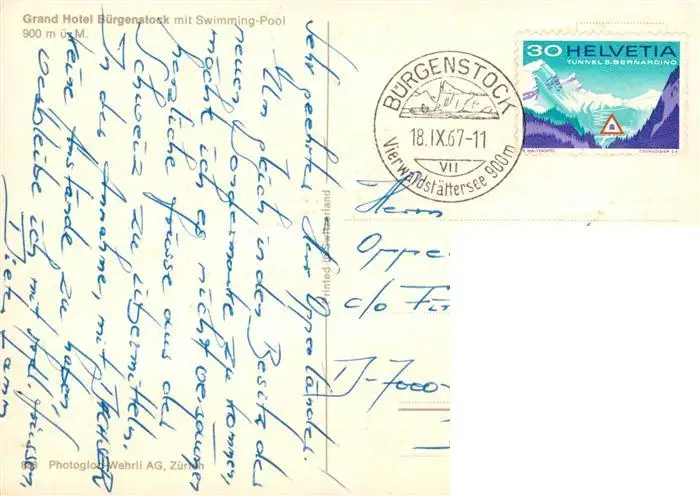 Grand Hotel Bürgenstock mit Swimming-Pool
900 m ü. M.
Sehr geehrter Herr Oppeländer!
Um gleich in den Besitz der
neuen Vordermonte zu kommen,
möchte ich es nicht versäumen
herzliche Grüsse aus der
Schweiz zu übermitteln.
In der Annahme, mit
keine Anstände zu haben
verbleibe ich mit frdl. Grüssen
Dieter Lamm
Printed in Switzerland
Photoglob-Wehrli AG, Zürich
BÜRGENSTOCK
18.IX.67-11
VII
Vierwaldstättersee 900m
30 HELVETIA
TUNNEL S. BERNARDINO
COURVOISIER S.A.
Herrn
Oppe
c/o Fi
D-7000-